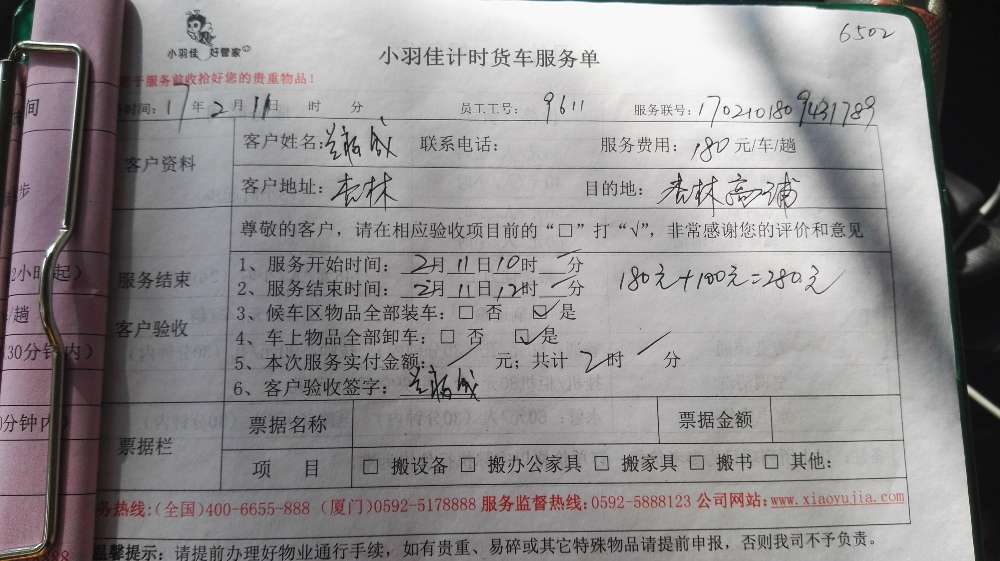 6502
小羽佳 好管家
小羽佳计时货车服务单
于服务前收拾好您的贵重物品！
时间：17年2月11日 时 分 员工工号：9611 服务联号：1702101809431789
客户资料
客户姓名： 联系电话： 服务费用：180元/车/趟
客户地址：杏林 目的地：杏林高浦
尊敬的客户，请在相应验收项目前的“□”打“√”，非常感谢您的评价和意见
服务结束
客户验收
1、服务开始时间：2月11日10时 分
2、服务结束时间：2月11日12时 分
180元+100元=280元
3、候车区物品全部装车：□ 否 ☑ 是
4、车上物品全部卸车：□ 否 ☑ 是
5、本次服务实付金额： 元；共计 2时 分
6、客户验收签字：
票据栏
票据名称 票据金额
项 目 □ 搬设备 □ 搬办公家具 □ 搬家具 □ 搬书 □ 其他：
务热线：(全国)400-6655-888 (厦门)0592-5178888 服务监督热线：0592-5888123 公司网站：www.xiaoyujia.com
温馨提示：请提前办理好物业通行手续，如有贵重、易碎或其它特殊物品请提前申报，否则我司不予负责。
间
步
2小时起）
/趟
30分钟内）
0分钟内）
88